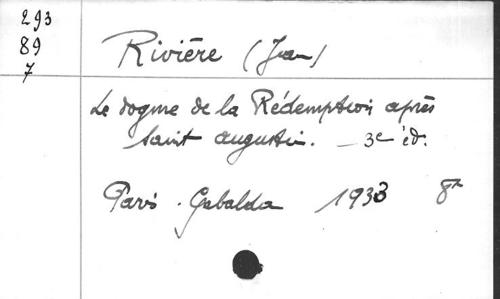 293
89
7
Rivière (Jean)
Le dogme de la Rédemption après
Saint Augustin. _ 3e éd.
Paris . Gabalda 1933 8º